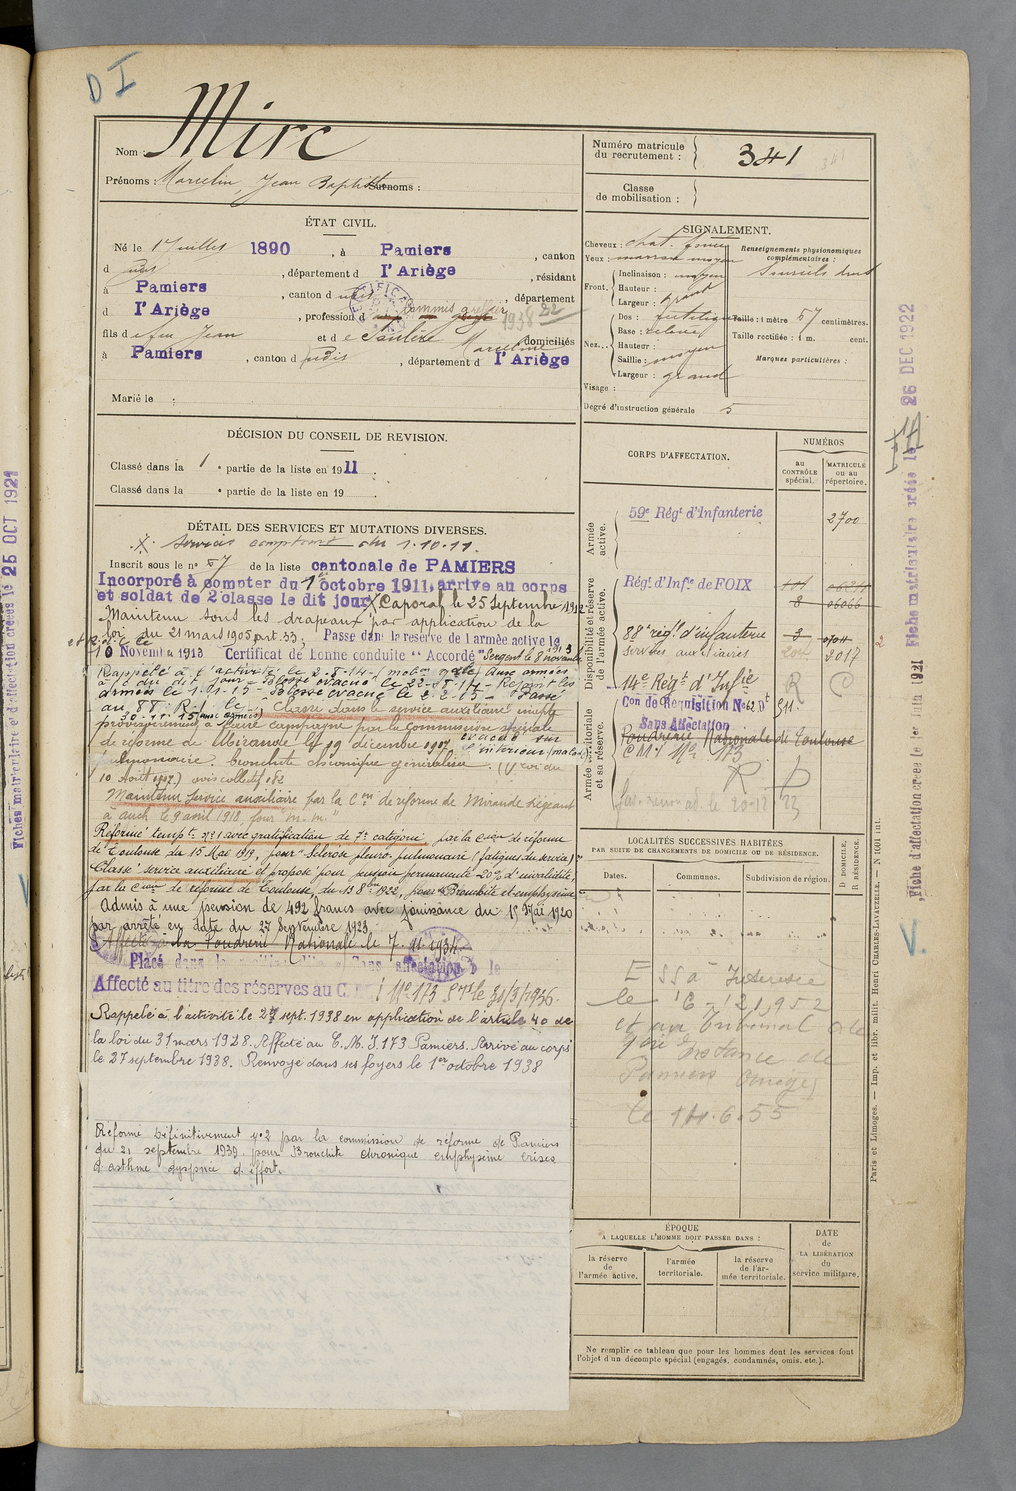 D I
Nom : Mirc
Prénoms : Marcelin, Jean Baptiste Surnoms :
Numéro matricule du recrutement : 341
Classe de mobilisation :
ÉTAT CIVIL.
Né le 1 Juillet 1890, à Pamiers, canton
d udit, département d l'Ariège, résidant
à Pamiers, canton d udit, département
d l'Ariège, profession d commis greffier
fils de feu Jean et de Marceline domiciliés
à Pamiers, canton d udit, département d l'Ariège
Marié le :
SIGNALEMENT.
Cheveux : chat. foncé
Yeux : marron moyen
Front. Inclinaison : moyen
Hauteur :
Largeur : grand
Nez. Dos :
Base : relevé
Hauteur :
Saillie : moyen
Largeur : grand
Visage :
Renseignements physionomiques complémentaires :
Sourcils droits
Taille : 1 mètre 67 centimètres.
Taille rectifiée : 1 m. cent.
Marques particulières :
Degré d'instruction générale 5
DÉCISION DU CONSEIL DE REVISION.
Classé dans la 1e partie de la liste en 1911.
Classé dans la e partie de la liste en 19
DÉTAIL DES SERVICES ET MUTATIONS DIVERSES.
X services comptant du 1.10.11.
Inscrit sous le n° 57 de la liste cantonale de PAMIERS
Incorporé à compter du 1er octobre 1911, arrive au corps
et soldat de 2e classe le dit jour X Caporal le 25 Septembre 1912
Maintenu sous les drapeaux par application de la
loi du 21 mars 1905, art. 33; Passé dans la réserve de l'armée active le
10 Novembre 1913 Certificat de bonne conduite "Accordé" Sergent le 8 novembre 1913
Rappelé à l'activité le 2-8-14 (mobon gale) Aux armées
à/c du dit jour - Blessé évacué le 22-8-14 - Rejoint les
armées le 1-01-15 - Blessé évacué le 2-2-15 - Passé
au 88e R.I. le 30-11-15 (aux armées) Classé dans le service auxiliaire inapte
provisoirement à faire campagne par la Commission spéciale
de réforme de Mirande le 19 décembre 1917 évacué sur l'intérieur (malade)
pulmonaire. bronchite chronique généralisée. (Loi du
10 Août 1917.) avis collectif 182
Maintenu service auxiliaire par la Con de réforme de Mirande siégeant
à Auch le 9 avril 1918 pour "m. m."
Réformé tempre n° 1 avec gratification de 7e catégorie par la Con de réforme
de Toulouse du 15 Mai 1919, pour "Sclérose pleuro-pulmonaire (fatigues du service)"
Classé service auxiliaire et proposé pour pension permanente 20% d'invalidité,
par la Con de réforme de Toulouse, du 13 8bre 1922, pour "Bronchite et emphysème
Admis à une pension de 492 francs avec jouissance du 15 Mai 1920
par arrêté en date du 27 Septembre 1923.
Affecté à la Poudrerie Nationale le 7.11.1934.
Affecté au titre des réserves au C.M.I. No 173 Pers le 30/3/1936.
Rappelé à l'activité le 27 sept. 1938 en application de l'article 40 de
la loi du 31 mars 1928. Affecté au C.M.I. 173 Pamiers. Arrivé au corps
le 27 septembre 1938. Renvoyé dans ses foyers le 1er octobre 1938
Réformé définitivement n° 2 par la commission de réforme de Pamiers
du 21 septembre 1939 pour Bronchite chronique emphysème crises
d'asthme dyspnée d'effort.
CORPS D'AFFECTATION.
NUMÉROS
au CONTRÔLE spécial.
MATRICULE OU AU répertoire.
Armée active.
59e Régt d'Infanterie 2700
Disponibilité et réserve de l'armée active.
Régt d'Infie de FOIX
88e régt d'infanterie
services auxiliaires 2017
14e Régt d'Infie R C
Armée territoriale et sa réserve.
Con de Réquisition
Sans Affectation
Poudrerie Nationale de Toulouse
CMI No 173
R P
LOCALITÉS SUCCESSIVES HABITÉES
PAR SUITE DE CHANGEMENTS DE DOMICILE OU DE RÉSIDENCE.
Dates. Communes. Subdivision de région. D DOMICILE, R RÉSIDENCE.
E SS à
le 16-12 1952
et au Tribunal de
Instance de
Pamiers (Ariège)
le 14.6.55
ÉPOQUE
À LAQUELLE L'HOMME DOIT PASSER DANS :
la réserve de l'armée active.
l'armée territoriale.
la réserve de l'armée territoriale.
DATE de LA LIBÉRATION du service militaire.
Ne remplir ce tableau que pour les hommes dont les services font
l'objet d'un décompte spécial (engagés, condamnés, omis, etc.).
Paris et Limoges. — Imp. et libr. milit. Henri CHARLES-LAVAUZELLE.
Fiche matriculaire créée le 26 DEC 1922
Fiche d'affectation créée le 1er Juin 1921
V.
Fiches matriculaire et d'affectation créées le 25 OCT 1921